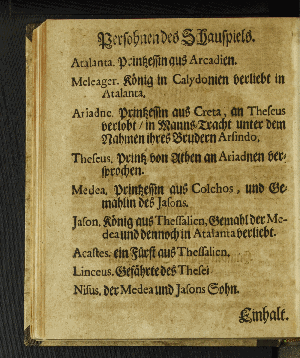 Persohnen des Schauspiels.
Atalanta. Printzessin aus Arcadien.
Meleager. König in Calydonien verliebt in
Atalanta,
Ariadne. Printzessin aus Creta, an Theseus
verlobt / in Manns-Tracht unter dem
Nahmen ihres Brudern Arsindo.
Theseus, Printz von Athen an Ariadnen ver-
sprochen.
Medea, Printzessin aus Colchos, und Ge-
mahlin des Jasons.
Jason, König aus Thessalien, Gemahl der Me-
dea und dennoch in Atalanta verliebt.
Acastes. ein Fürst aus Thessalien.
Linceus. Gefährte des Thesei
Nisus, der Medea und Jasons Sohn.
Einhalt.